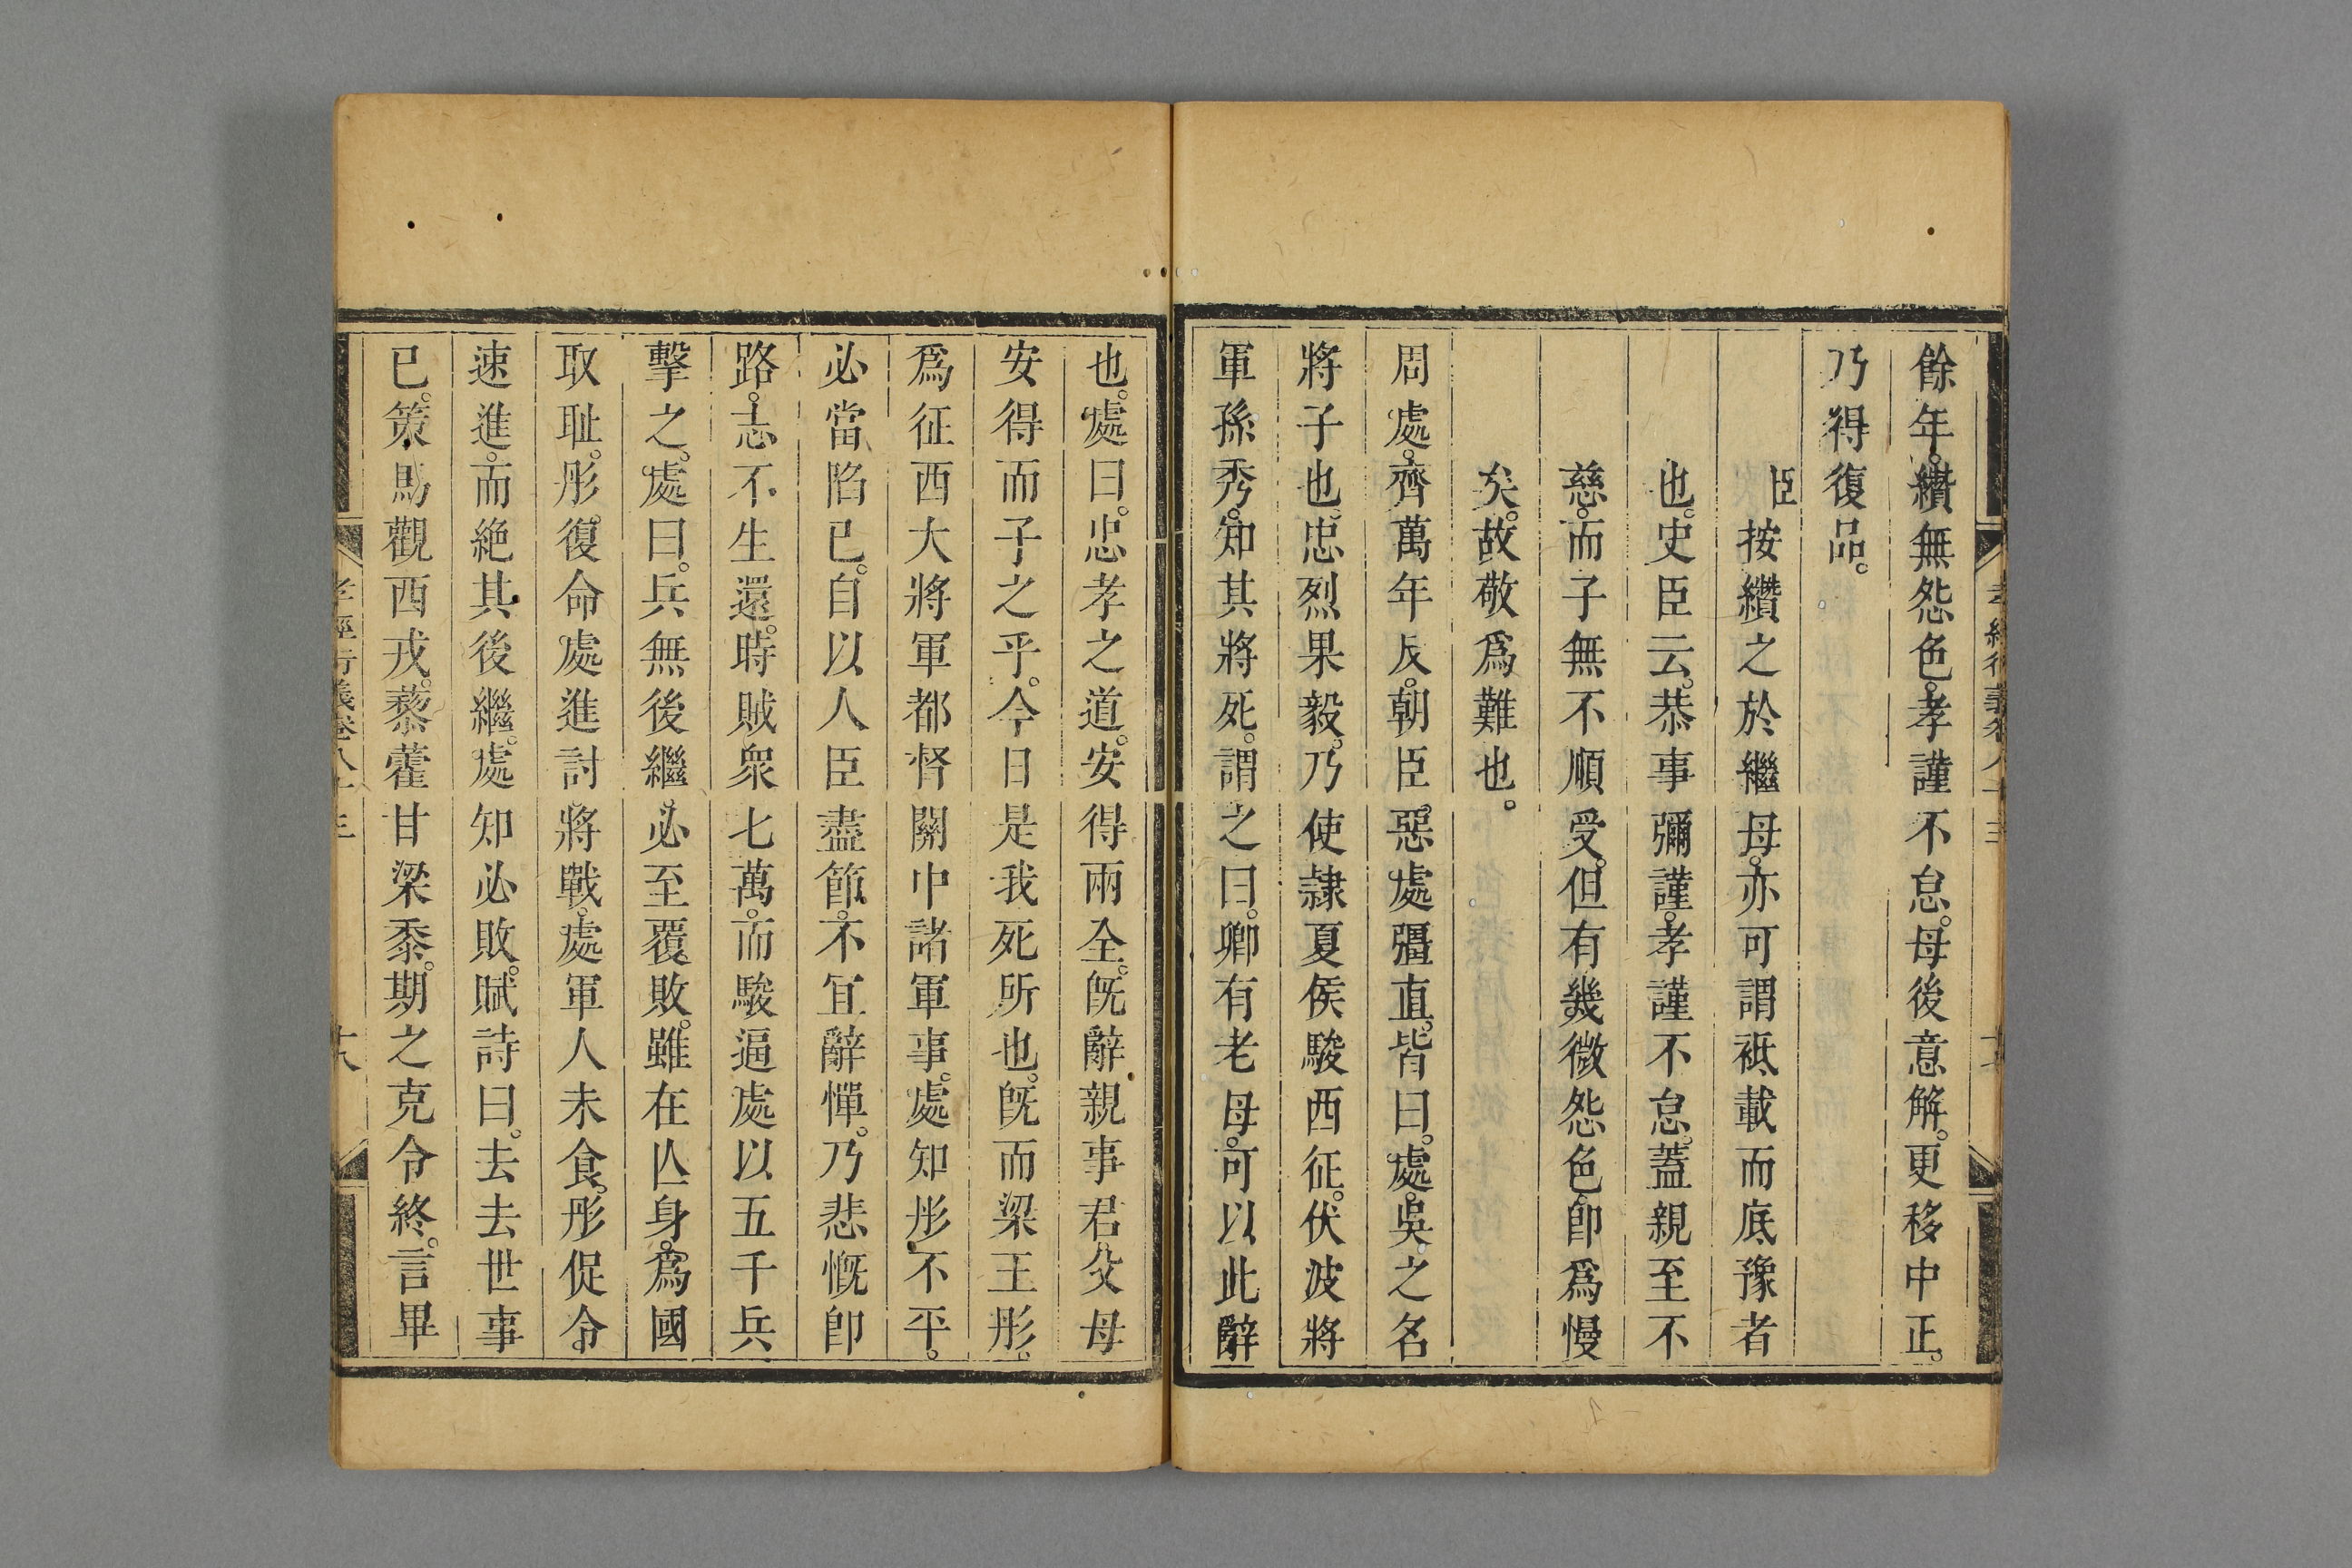 餘年。纘無怨色。孝謹不怠。母後意解。更移中正。
乃得復品。
臣按纘之於繼母。亦可謂祗載而底豫者
也。史臣云。恭事彌謹。孝謹不怠。蓋親至不
慈。而子無不順受。但有幾微怨色。卽爲慢
矣。故敬爲難也。
周處。齊萬年反。朝臣。惡處彊直。皆曰。處。吳之名
將子也。忠烈果毅。乃使隷夏侯駿西征。伏波將
軍孫秀。知其將死。謂之曰。卿有老母。可以此辭
也。處曰。忠孝之道。安得兩全。旣辭親事君。父母
安得而子之乎。今日是我死所也。旣而梁王彤。
爲征西大將軍都督關中諸軍事。處知彤不平。
必當陷已。自以人臣盡節。不宜辭憚。乃悲慨卽
路。志不生還。時賊衆七萬。而駿逼處以五千兵
擊之。處曰。兵無後繼。必至覆敗。雖在亾身。爲國
取耻。彤。復命處進討。將戰。處軍人未食。彤促令
速進。而絶其後繼。處知必敗。賦詩曰。去去世事
已。策馬觀西戎。藜藿甘梁黍。期之克令終。言畢
孝經衍義卷八十三
十八